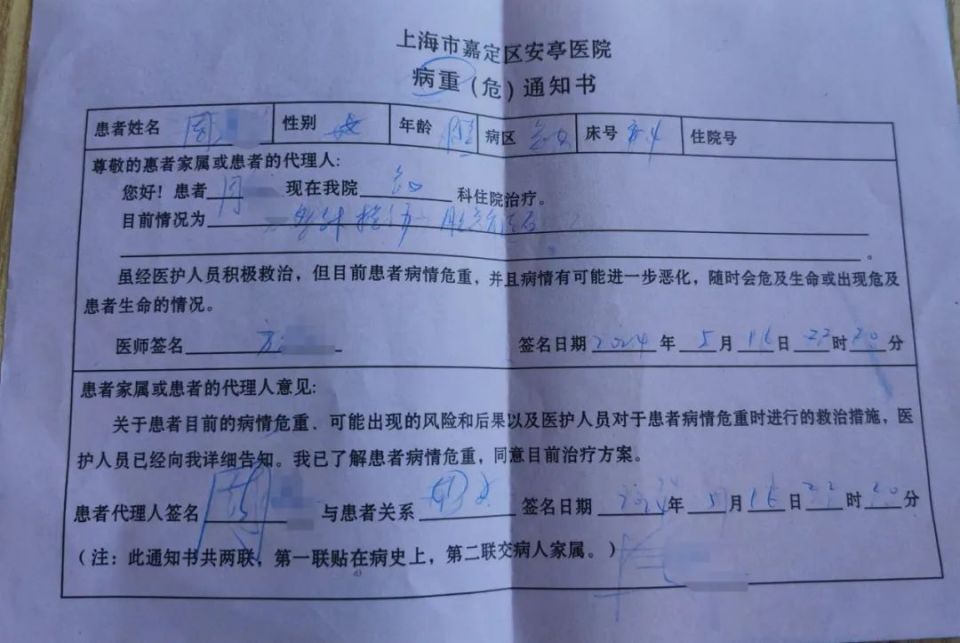 上海市嘉定区安亭医院
病重（危）通知书
患者姓名 周 性别 女 年龄 病区 床号 住院号
尊敬的患者家属或患者的代理人：
您好！患者 周 现在我院 科住院治疗。
目前情况为
。
虽经医护人员积极救治，但目前患者病情危重，并且病情有可能进一步恶化，随时会危及生命或出现危及
患者生命的情况。
医师签名 方 签名日期 2024 年 5 月 16 日 22 时 20 分
患者家属或患者的代理人意见：
关于患者目前的病情危重、可能出现的风险和后果以及医护人员对于患者病情危重时进行的救治措施，医
护人员已经向我详细告知。我已了解患者病情危重，同意目前治疗方案。
患者代理人签名 周 与患者关系 签名日期 2024 年 5 月 16 日 22 时 20 分
（注：此通知书共两联，第一联贴在病史上，第二联交病人家属。）